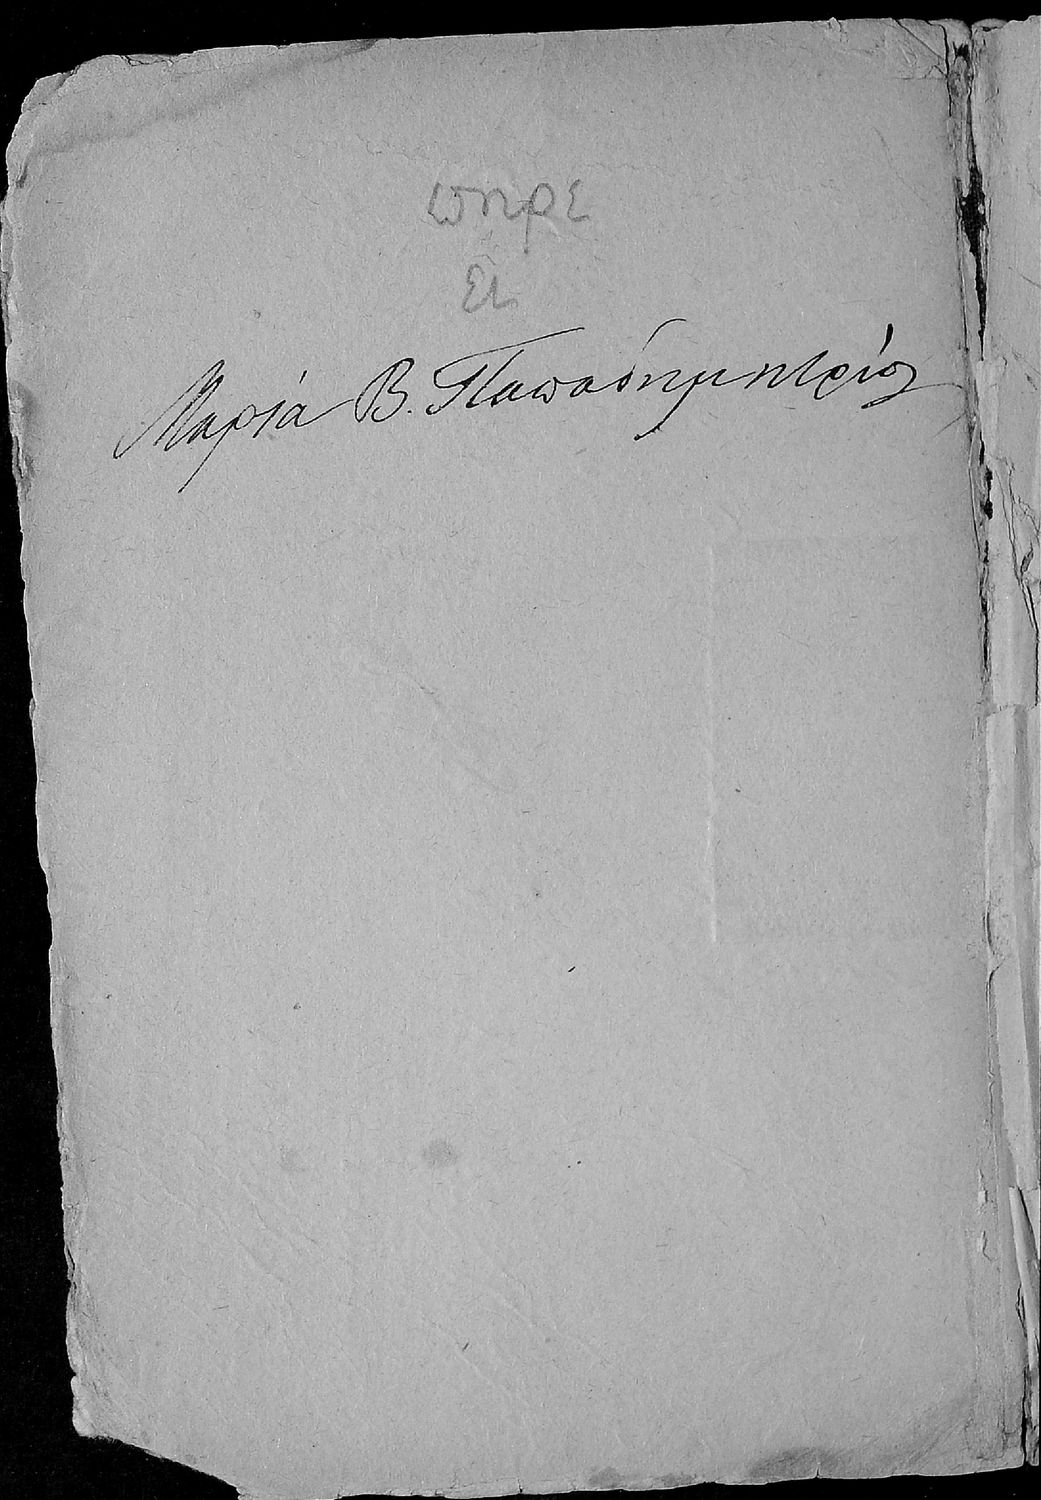 πηρε
Μαρία Β. Παπαδημητρίου